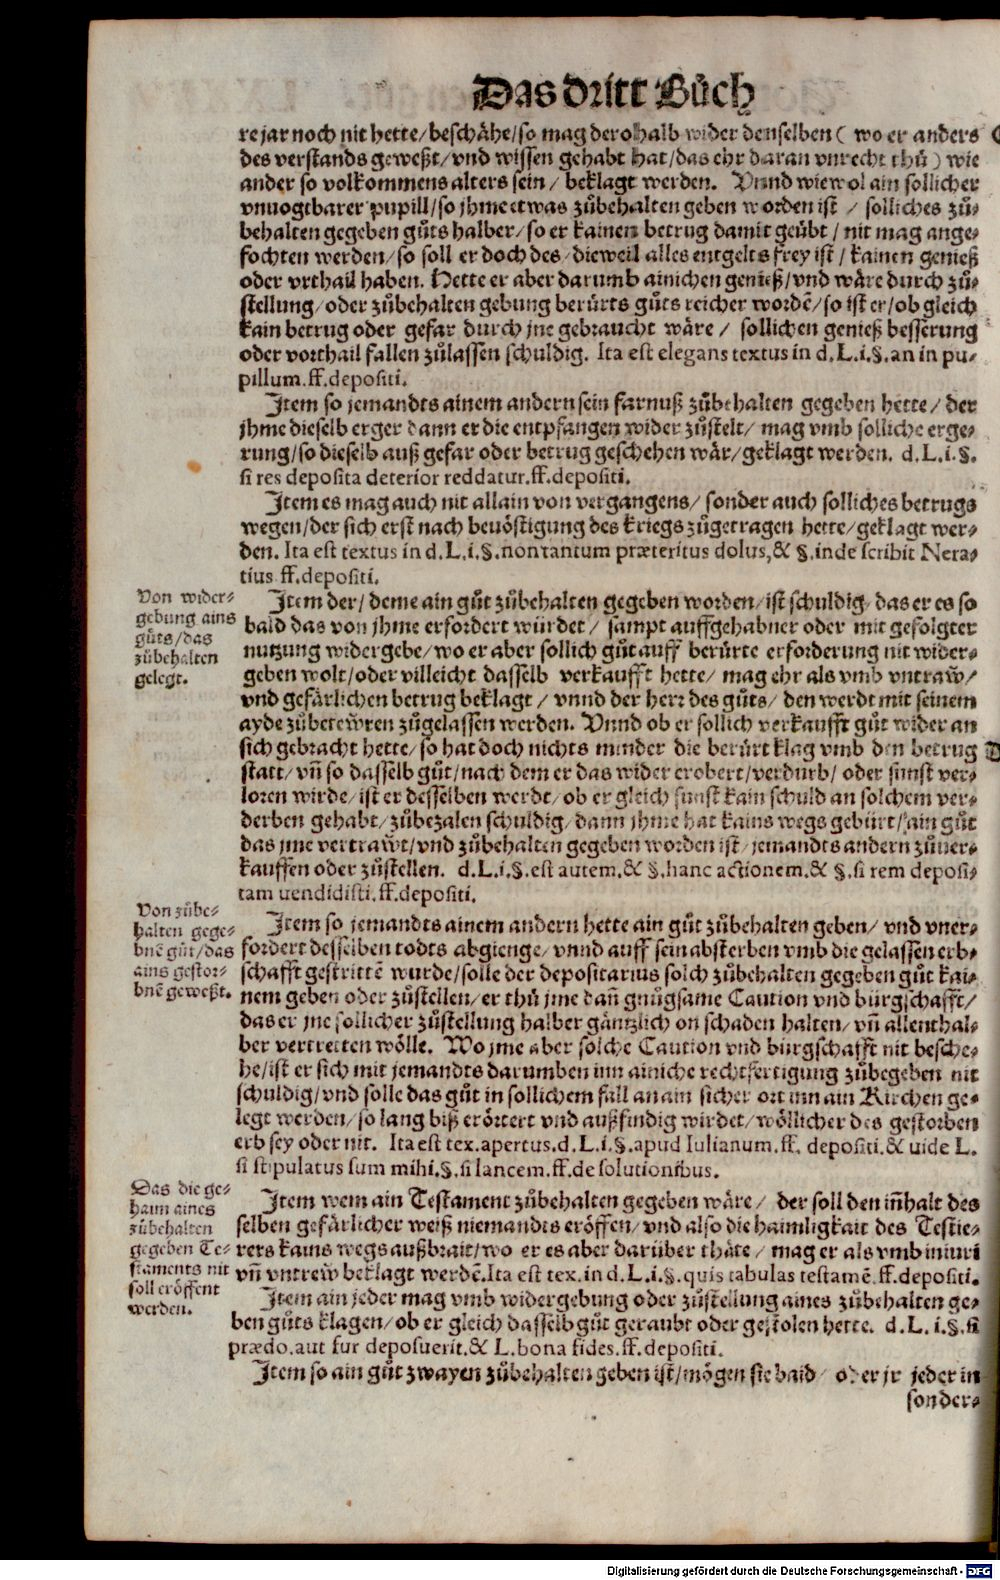 Das dritt Bůch
re jar noch nit hette/ beschähe/ so mag derohalb wider denselben ( wo er anders
des verstands geweßt/ vnd wissen gehabt hat/ das ehr daran vnrecht thů) wie
ander so volkommens alters sein/ beklagt werden. Vnnd wiewol ain sollicher
vnuogtbarer pupill/ so jhme etwas zůbehalten geben worden ist / solliches zů⸗
behalten gegeben gůts halber/ so er kainen betrug damit geůbt/ nit mag ange⸗
fochten werden/ so soll er doch des/ dieweil alles entgelts frey ist/ kainen genieß
oder vrthail haben. Hette er aber darumb ainichen genieß/ vnd wäre durch zů⸗
stellung/ oder zůbehalten gebung berürts gůts reicher wordē/ so ist er/ ob gleich
kain betrug oder gefar durch jne gebraucht wäre / sollichen genieß besserung
oder vorthail fallen zůlassen schuldig. Ita est elegans textus in d.L.i.§.an in pu⸗
pillum.ff.depositi.
Item so jemandts ainem andern sein farnuß zůbehalten gegeben hette/ der
jhme dieselb erger dann er die entpfangen wider zůstelt/ mag vmb solliche erge⸗
rung/ so dieselb auß gefar oder betrug geschehen wär/ geklagt werden. d.L.i.§.
si res deposita deterior reddatur.ff.depositi.
Item es mag auch nit allain von vergangens/ sonder auch solliches betrugs
wegen/ der sich erst nach beuöstigung des kriegs zůgetragen hette/ geklagt wer⸗
den. Ita est textus in d.L.i.§.non tantum præteritus dolus,& §.inde scribit Nera⸗
tius ff.depositi.
Von wider⸗
gebung ains
gůts/ das
zůbehalten
gelegt.
Item der/ deme ain gůt zůbehalten gegeben worden/ ist schuldig/ das er es so
bald das von jhme erfordert würdet / sampt auffgehabner oder mit gefolgter
nutzung widergebe/ wo er aber sollich gůt auff berürte erforderung nit wider⸗
geben wolt/ oder villeicht dasselb verkaufft hette/ mag ehr als vmb vntraw̃/
vnd gefärlichen betrug beklagt / vnnd der herr des gůts/ den werdt mit seinem
ayde zůbetew̃ren zůgelassen werden. Vnnd ob er sollich verkaufft gůt wider an
sich gebracht hette/ so hat doch nichts minder die berürt klag vmb den betrug
statt/ vñ so dasselb gůt/ nach dem er das wider erobert/ verdurb/ oder sunst ver⸗
loren wirde/ ist er desselben werdt/ ob er gleich sunst kain schuld an solchem ver⸗
derben gehabt/ zůbezalen schuldig/ dann jhme hat kains wegs gebürt/ ain gůt
das jme vertraw̃t/ vnd zůbehalten gegeben worden ist/ jemandts andern zůuer⸗
kauffen oder zůstellen. d.L.i.§.est autem.& §.hanc actionem.& §.si rem deposi⸗
tam uendidisti.ff.depositi.
Von zůbe⸗
halten gege⸗
bnē gůt/ das
ains gestor⸗
bnē geweßt.
Item so jemandts ainem andern hette ain gůt zůbehalten geben/ vnd vner⸗
fordert desselben todts abgienge/ vnnd auff sein absterben vmb die gelassen erb⸗
schafft gestrittē wurde/ solle der depositarius solch zůbehalten gegeben gůt kai⸗
nem geben oder zůstellen/ er thů jme dañ gnůgsame Caution vnd bürgschafft/
das er jne sollicher zůstellung halber gäntzlich on schaden halten/ vñ allenthal⸗
ber vertretten wölle. Wo jme aber solche Caution vnd bürgschafft nit besche⸗
he/ ist er sich mit jemandts darumben inn ainiche rechtfertigung zůbegeben nit
schuldig/ vnd solle das gůt in sollichem fall an ain sicher ort inn ain Kirchen ge⸗
legt werden/ so lang biß erörtert vnd außfindig wirdet/ wöllicher des gestorben
erb sey oder nit. Ita est tex.apertus.d.L.i.§.apud Iulianum.ff. depositi.& uide L.
si stipulatus sum mihi.§.si lancem.ff.de solutionibus.
Das die ge⸗
haim aines
zůbehalten
gegeben Te⸗
staments nit
soll eröffent
werden.
Item wem ain Testament zůbehalten gegeben wäre/ der soll den iñhalt des
selben gefärlicher weiß niemandts eröffen/ vnd also die haimligkait des Testie⸗
rers kains wegs außbrait/ wo er es aber darüber thäte / mag er als vmb iniuri
vñ vntrew̃ beklagt werdē.Ita est tex.in d.L.i.§.quis tabulas testamē.ff.depositi.
Item ain jeder mag vmb widergebung oder zůstellung aines zůbehalten ge⸗
ben gůts klagen/ ob er gleich dasselb gůt geraubt oder gestolen hette. d.L.i.§.si
prædo.aut fur deposuerit.& L.bona fides.ff.depositi.
Item so ain gůt zwayen zůbehalten geben ist/ mögen sie baid/ oder jr jeder in
sonder⸗
Digitalisierung gefördert durch die Deutsche Forschungsgemeinschaft - DFG